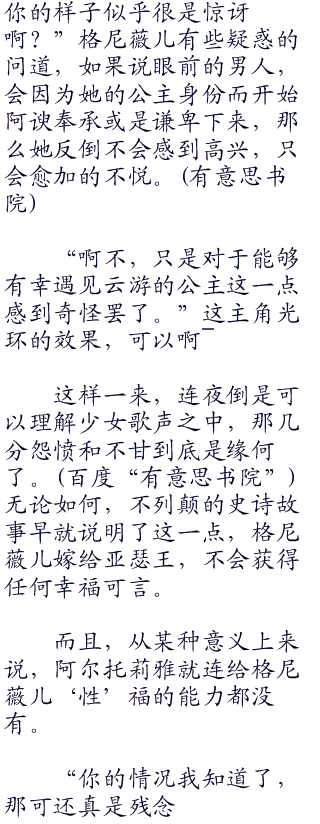 你的样子似乎很是惊讶
啊？”格尼薇儿有些疑惑的
问道，如果说眼前的男人，
会因为她的公主身份而开始
阿谀奉承或是谦卑下来，那
么她反倒不会感到高兴，只
会愈加的不悦。(有意思书
院)
“啊不，只是对于能够
有幸遇见云游的公主这一点
感到奇怪罢了。”这主角光
环的效果，可以啊
这样一来，连夜倒是可
以理解少女歌声之中，那几
分怨愤和不甘到底是缘何
了。(百度“有意思书院”)
无论如何，不列颠的史诗故
事早就说明了这一点，格尼
薇儿嫁给亚瑟王，不会获得
任何幸福可言。
而且，从某种意义上来
说，阿尔托莉雅就连给格尼
薇儿‘性’福的能力都没
有。
“你的情况我知道了，
那可还真是残念